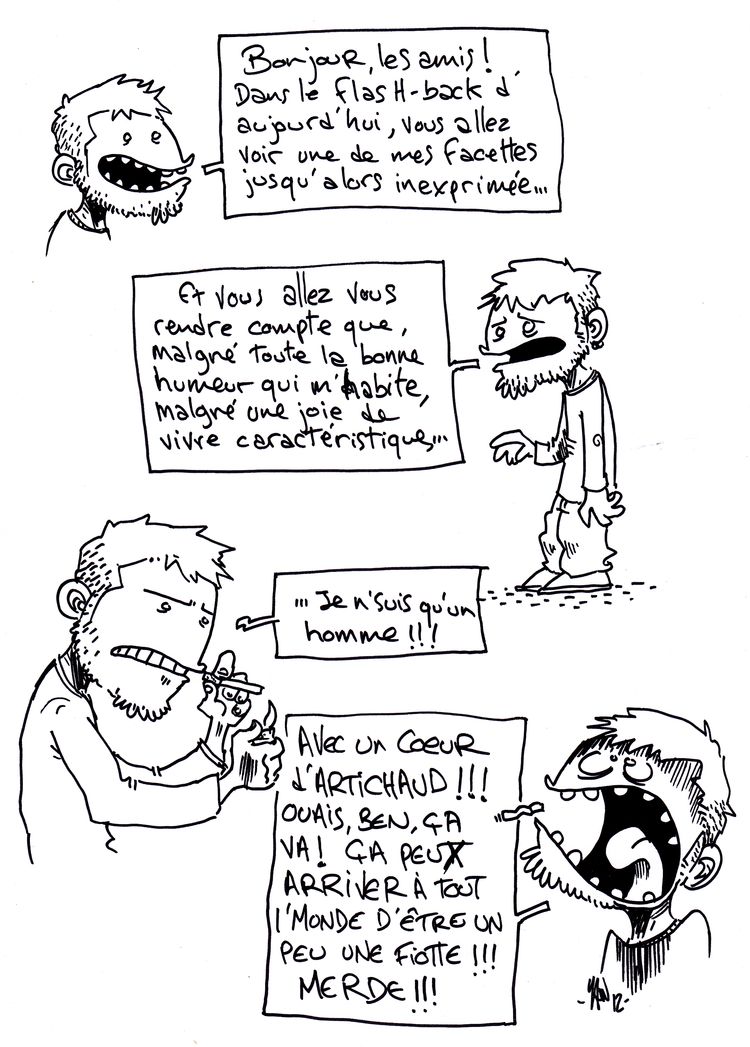 Bonjour, les amis!
Dans le flasH-back d'
aujourd'hui, vous allez
voir une de mes facettes
jusqu'alors inexprimée...
Et vous allez vous
rendre compte que,
malgré toute la bonne
humeur qui m'habite,
malgré une joie de
vivre caractéristique,...
... Je n'suis qu'un
homme!!!
AVEC UN COEUR
d'ARTICHAUD!!!
OUAIS, BEN, ÇA
VA! ÇA PEUX
ARRIVER À TOUT
l'MONDE D'ÊTRE UN
PEU UNE FIOTTE!!!
MERDE!!!
12